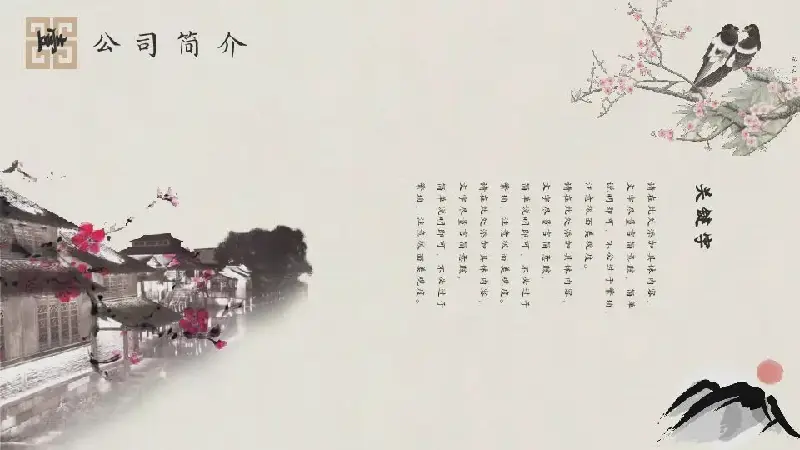 壹
公司简介
关键字
请在此处添加具体内容,
文字尽量言简意赅,简单
说明即可,不必过于繁琐
注意版面美观度。
请在此处添加具体内容,
文字尽量言简意赅,
简单说明即可,不必过于
繁琐,注意版面美观度。
请在此处添加具体内容,
文字尽量言简意赅,
简单说明即可,不必过于
繁琐,注意版面美观度。